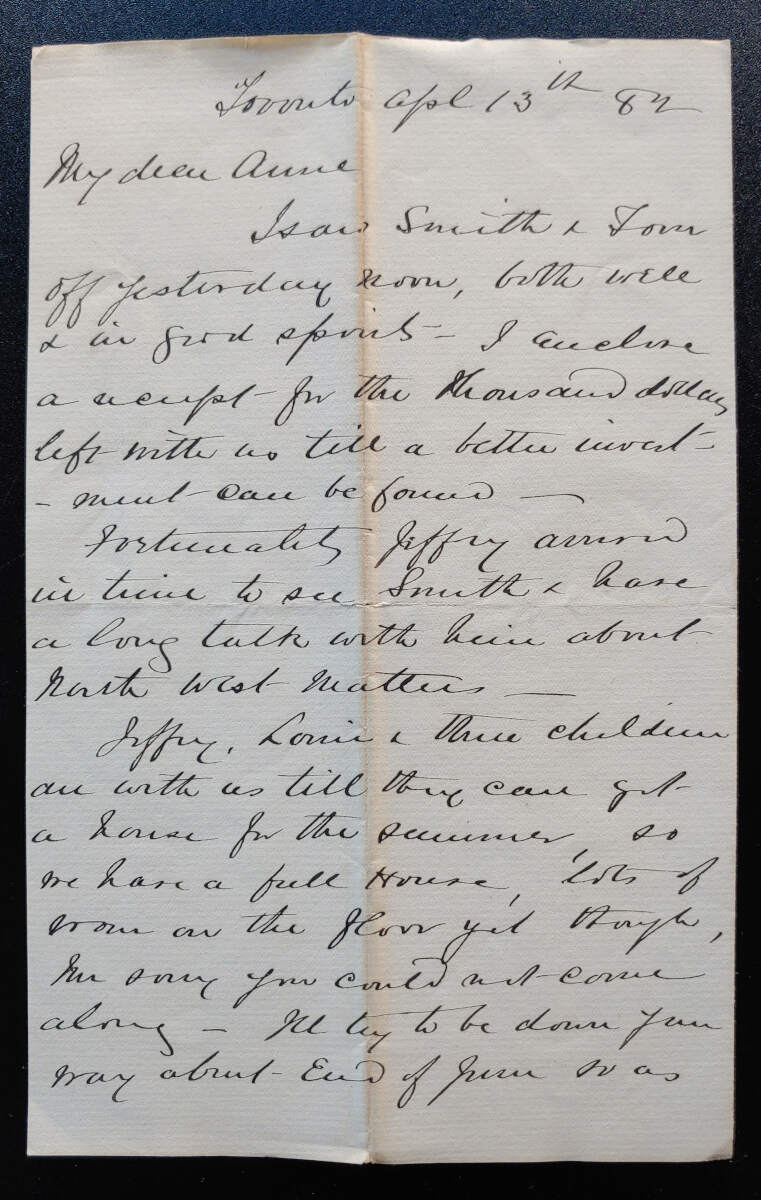 Toronto Apl 13th 82
My dear Anne
I saw Smith & Tom
off yesterday noon, both well
& in good spirits - I enclose
a receipt for the Thousand dollars
left with us till a better invest-
- ment can be found —
Fortunately Jeffry arrived
in time to see Smith & have
a long talk with him about
North West Matters —
Jeffry, Lonie & three children
are with us till they can get
a house for the summer, so
we have a full House, lots of
room on the floor yet though,
I'm sorry you could not come
along - I'll try to be down your
way about End of June so as